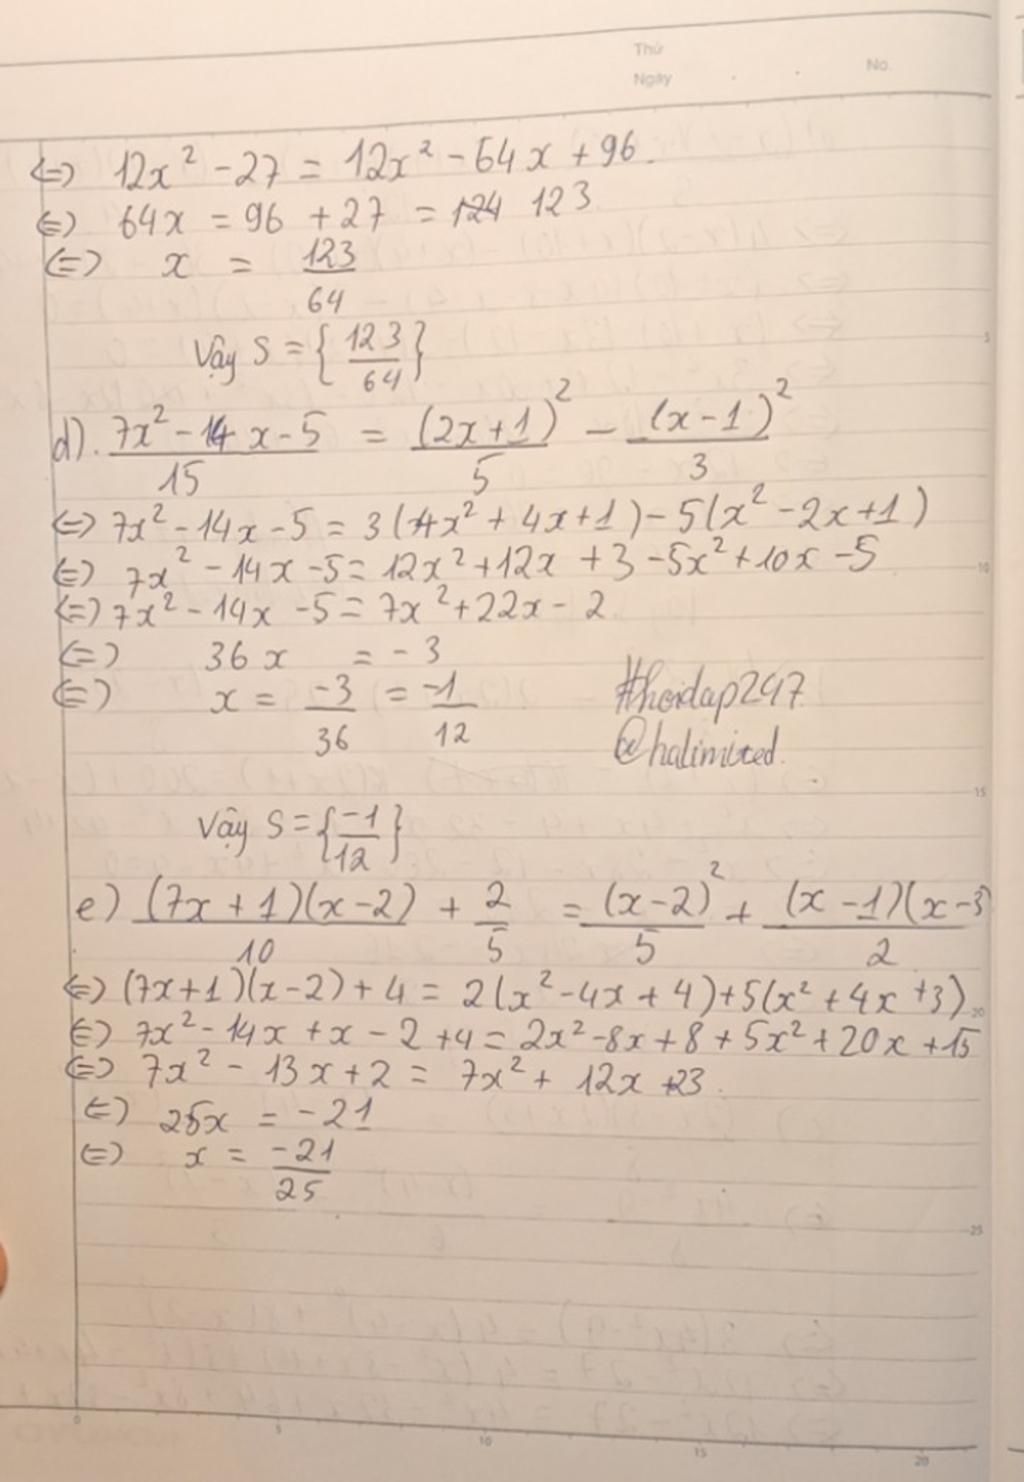 Thứ
Ngày
No.
⇔ 12x² - 27 = 12x² - 64x + 96.
⇔ 64x = 96 + 27 = 124 123
⇔ x = 123/64
Vậy S = {123/64}
d). (7x² - 14x - 5)/15 = (2x+1)²/5 - (x-1)²/3
⇔ 7x² - 14x - 5 = 3(4x² + 4x + 1) - 5(x² - 2x + 1)
⇔ 7x² - 14x - 5 = 12x² + 12x + 3 - 5x² + 10x - 5
⇔ 7x² - 14x - 5 = 7x² + 22x - 2
⇔ 36x = -3
⇔ x = -3/36 = -1/12
#hoidap247
@halimited.
Vậy S = {-1/12}
e) (7x+1)(x-2)/10 + 2/5 = (x-2)²/5 + (x-1)(x-3)/2
⇔ (7x+1)(x-2) + 4 = 2(x² - 4x + 4) + 5(x² + 4x + 3)
⇔ 7x² - 14x + x - 2 + 4 = 2x² - 8x + 8 + 5x² + 20x + 15
⇔ 7x² - 13x + 2 = 7x² + 12x + 23.
⇔ 25x = -21
⇔ x = -21/25
5
10
15
20
25
0
5
10
15
20